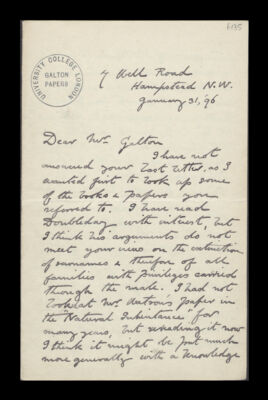 6135
UNIVERSITY COLLEGE LONDON
GALTON
PAPERS
7 Well Road
Hampstead N.W.
January 31, '96
Dear Mr. Galton
I have not
answered your last letter, as I
wanted first to look up some
of the books & papers you
referred to. I have read
Doubleday with interest, but
I think his arguments do not
meet your views on the extinction
of surnames & therefore of all
families with privileges carried
through the male. I had not
looked at Mr. Watson's paper in
the "Natural Inheritance" for
many years, but rereading it now
I think it might be put much
more generally with a knowledge